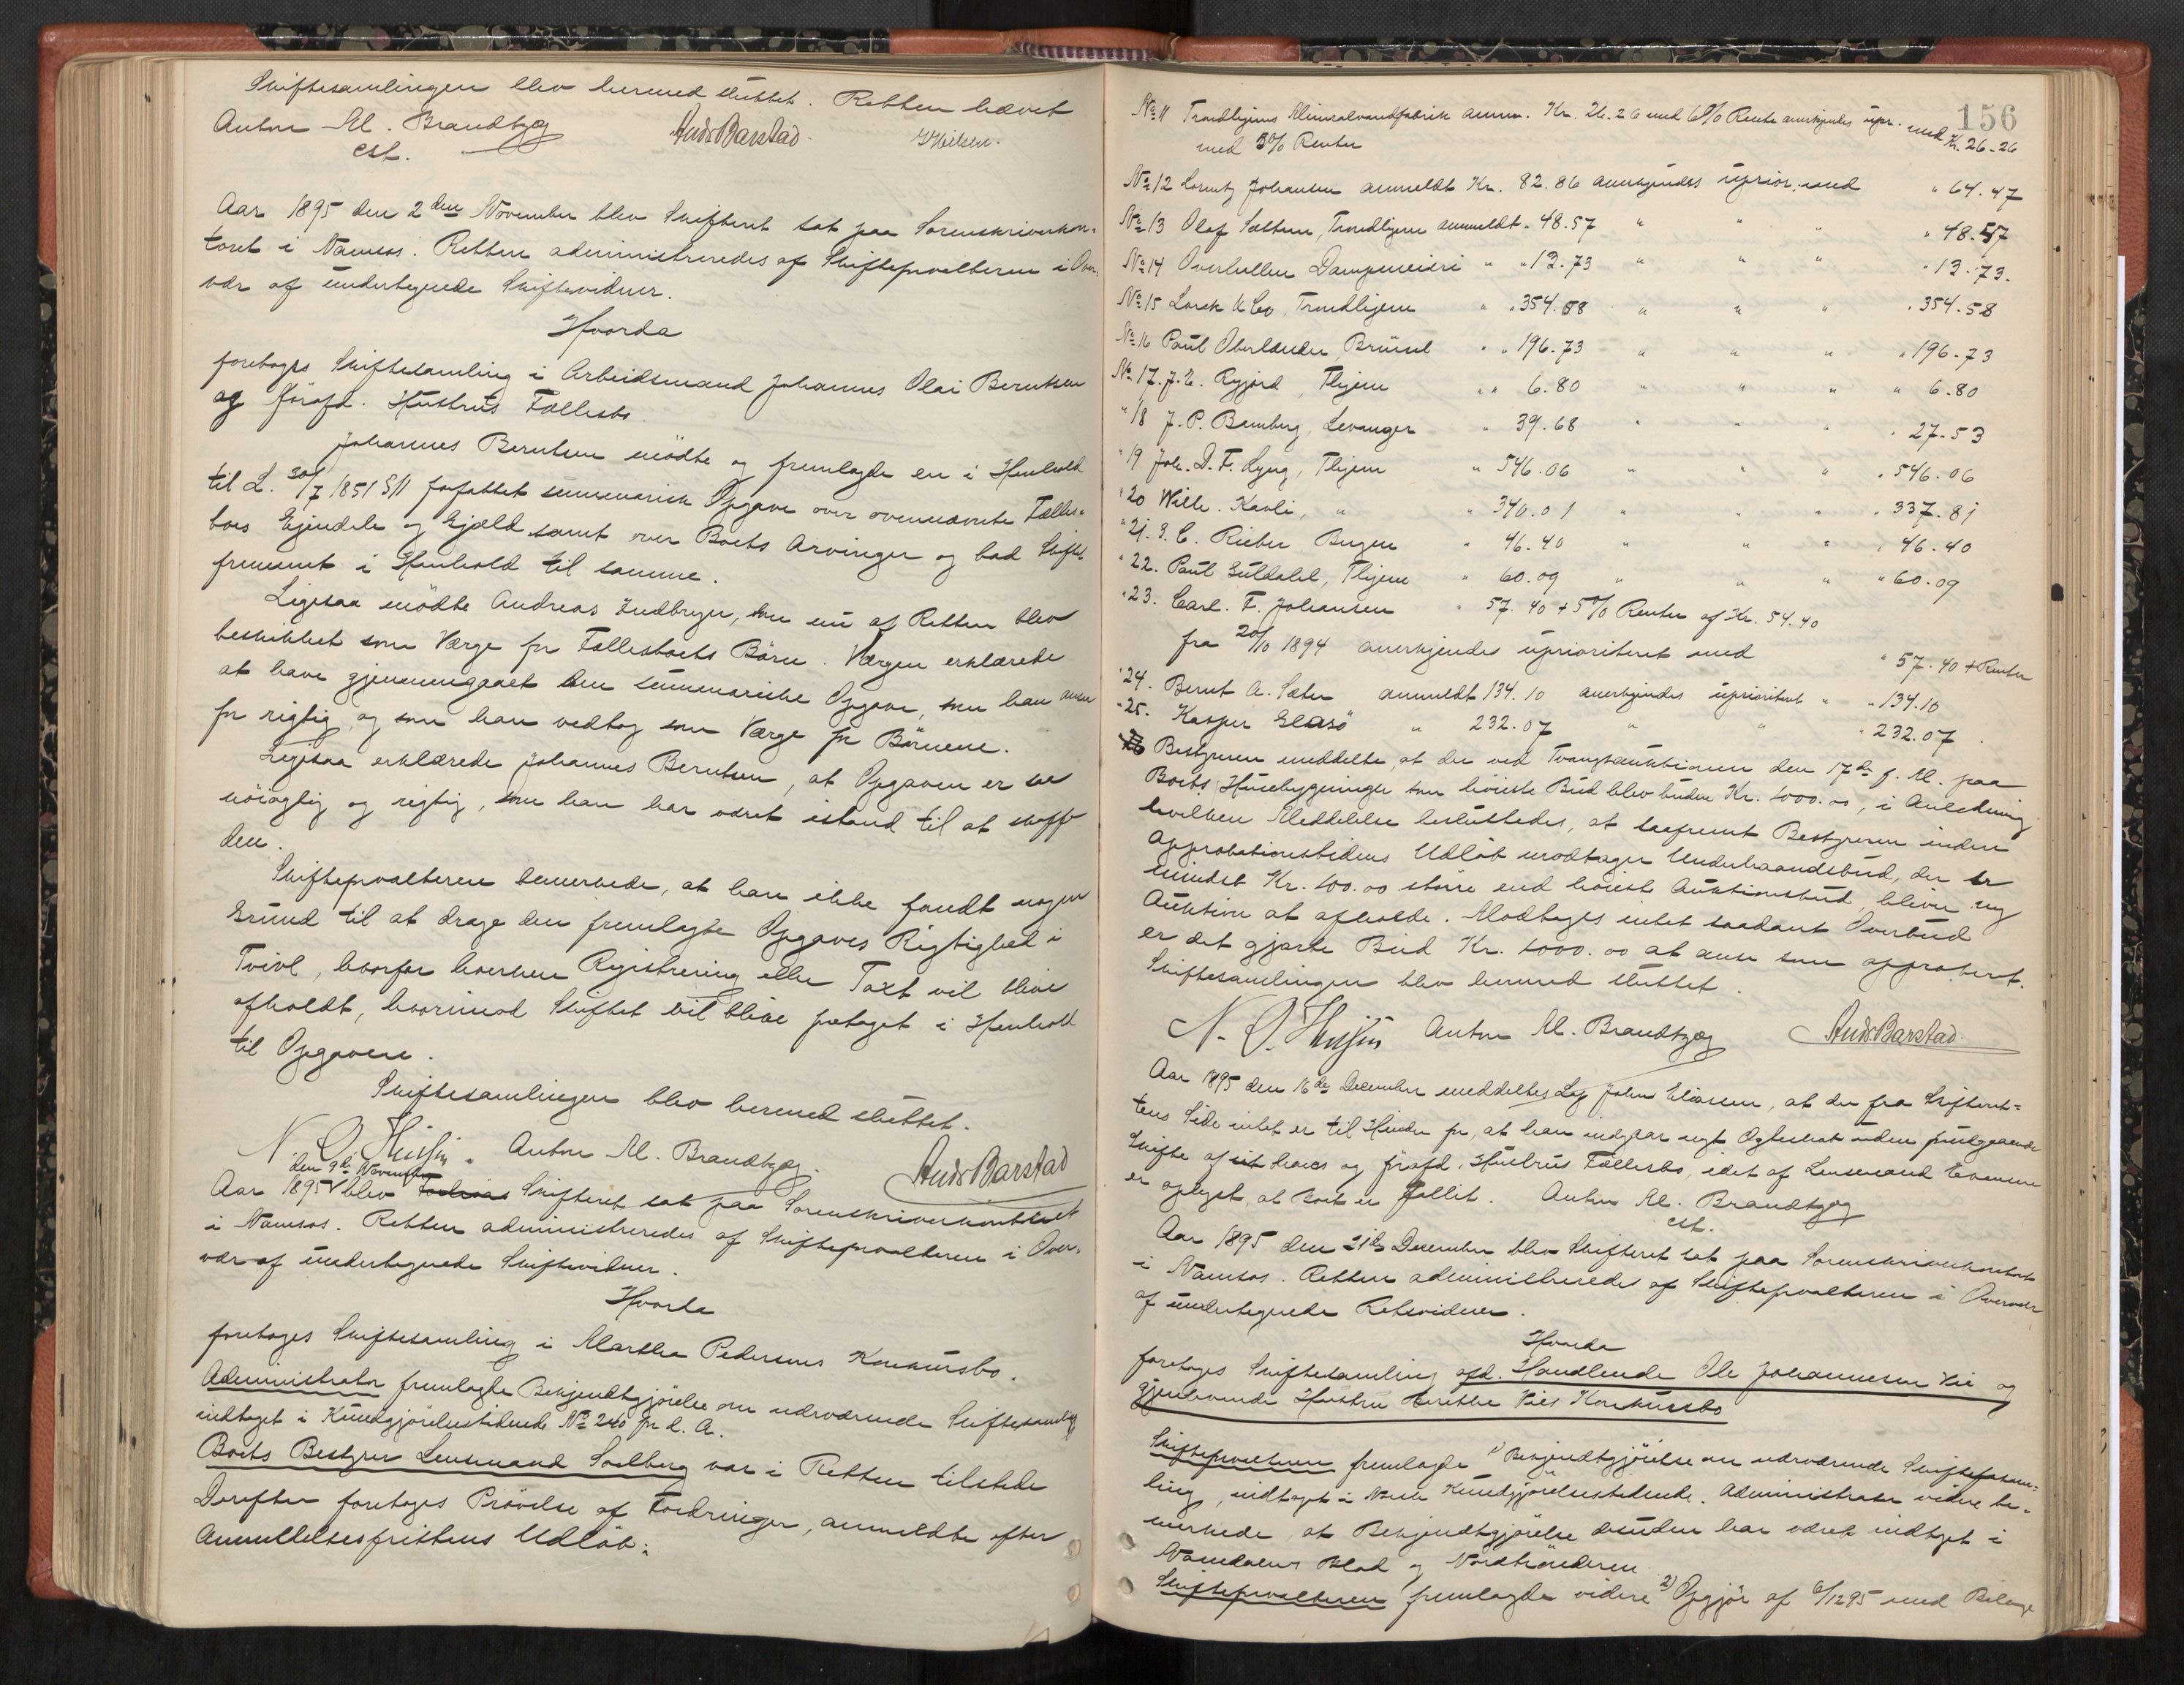 Skiftesamlingen blev hermed sluttet. Retten hævet
Anton M. Brandtzæg
Ands Barstad
cst.
Aar 1895 den 2den November blev Skifteret sat paa Sorenskriverkon-
toret i Namsos. Retten administreredes af Skifteforvalteren i Over-
vær af undertegnede Skiftevidner.
Hvorda
foretoges Skiftesamling i Arbeidsmand Johannes Olai Berntsen
og föravd. Hustrus Fællesbo.
Johannes Berntsen mödte og fremlagde en i Henhold
til L. 30/7 1851 § 11 forfattet summarisk Opgave over ovennævnte Fælles-
boes Ejendele og Gjæld samt over Boets Arvinger og bad Skiftet
fremmet i Henhold til samme.
Ligesaa mödte Andreas Indbryn, som nu af Retten blev
beskikket som Værge for Fællesboets Börn. Værgen erklærede
at have gjennemgaaet den summariske Opgave, som han anser
for rigtig, og som han vedtog som Værge for Börnene.
Ligesaa erklærede Johannes Berntsen, at Opgaven er saa
nöiagtig og rigtig, som han har været istand til at skaffe
den.
Skifteforvalteren bemerkede, at han ikke fandt nogen
Grund til at drage den fremlagte Opgaves Rigtighed i
Tvivl, hvorfor hverken Registrering eller Taxt vil blive
afholdt, hvorimod Skiftet vil blive foretaget i Henhold
til Opgaven.
Skiftesamlingen blev hermed sluttet.
Anton M. Brandtzæg.
Ands Barstad
den 9de November
Aar 1895 blev Skifteret sat paa Sorenskriverkontoret
i Namsos. Retten administreredes af Skifteforvalteren i Over-
vær af undertegnede Skiftevidner.
Hvorda
foretoges Skiftesamling i Martha Pedersens Konkursbo.
Administrator fremlagte Bekjendtgjörelse om nærværende Skiftesamling
indtaget i Kundgjörelsestidende No 240 for d. A.
Boets Bestyrer Lensmand Solberg var i Retten tilstede
Derefter foretoges Prövelse af Fordringer, anmeldte efter
Anmeldelsesfristens Udlöb:
156
No 11 Trondhjems Mineralvandfabrik anm. Kr. 26.26 med 6% Rente anerkjendes upr. med Kr. 26-26
med 5% Renter
No 12 Lorentz Johansen anmeldt Kr. 82.86 anerkjendes uprior. med " 64.47
No 13 Olaf Sættem, Trondhjem anmeldt " 48.57 " " " 48.57
No 14 Overhallen Dampmeieri " " 13.73 " " " " 13.73.
No 15 Lorck & Co, Trondhjem " " 354.58 " " " " 354.58
No 16 Paul Oberländer, Brünel " " 196.73 " " " " 196-73
No 17. J. E. Rygjord, Thjem " " 6.80 " " " " 6.80
" 18 J. P. Bamberg, Levanger " 39.68 " " " " 27-53
" 19 Joh. D. F. Lyng, Thjem " 546.06 " " " " 546.06
" 20 Wilh. Kavli, " " 340.01 " " " " 337.81
" 21. G. C. Rieber Bergen " 46.40 " " " " 46.40
" 22. Paul Guldahl, Thjem " 60.09 " " " " 60.09
" 23. Carl. F. Johansen " 57.40 + 5% Renter af Kr. 54.40
fra 20/10 1894 anerkjendes uprioriteret med " 57.40 + Renter
" 24. Bernt A. Sæter anmeldt 134.10 anerkjendes uprioritert " " 134.10
" 25. Kasper Glasö " 232.07 " " " 232.07.
Bestyreren meddelte, at der ved Tvangsauktionen den 17de f. M. paa
Boets Husebygninger som höieste Bud blev buden Kr. 1000.00, i Anledning
hvilken Meddelelse besluttedes, at saafremt Bestyreren inden
Approbationstidens Udlöb modtager Underhaandsbud, der er
mindst Kr. 100.00 större end höieste Auktionsbud, bliver ny
Auktion at afholde. Modtages intet saadant Overbud
er det gjorte Bud Kr. 1000.00 at anse som approberet.
Skiftesamlingen blev hermed sluttet.
Anton M. Brandtzæg
Ands Barstad.
Aar 1895 den 16de December meddeltes Lejl. Johan Eliasen, at der fra Skifteret-
tens Side intet er til Hinder for, at han indgaar nyt Ægteskab uden forudgaaende
Skifte af sit haves og föravd. Hustrus Fællesbo, idet af Lensmand Evensen
er oplyst, at Boet er fallit. Anton M. Brandtzæg
cst.
Aar 1895 den 21de December blev Skifteret sat paa Sorenskriverkontoret
i Namsos. Retten administreredes af Skifteforvalteren i Overvær
af undertegnede Retsvidner.
Hvorda
foretoges Skiftesamling afd. Handlende Ole Johannesen Vie og
gjenlevende Hustru Berethe Vies Konkursbo
Skifteforvalteren fremlagde 1) Bekjendtgjörelse om nærværende Skiftesam-
ling, indtaget i Norsk Kundgjörelsestidende. Administrator videre be-
merkede, at Bekjendtgjörelse desuden har været indtaget i
Namdalens Blad og Nordtrönderen
Skifteforvalteren fremlagde videre 2) Opgjör af 6/12 95 med Bilage